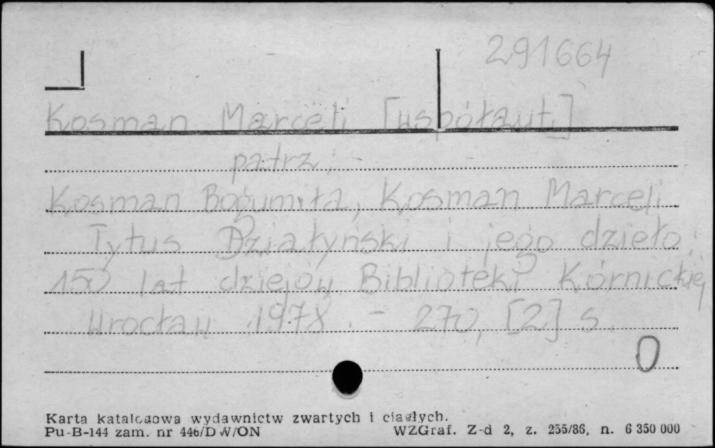 291664
Kosman Marceli [współaut.]
patrz:
Kosman Bogumiła, Kosman Marceli
Tytus Działyński i jego dzieło.
150 lat dziejów Biblioteki Kórnickiej
Wrocław 1978. - 270, [2] s.
0
Karta katalogowa wydawnictw zwartych i ciągłych.
Pu-B-144 zam. nr 446/DW/ON WZGraf. Z-d 2, z. 255/86, n. 6 350 000